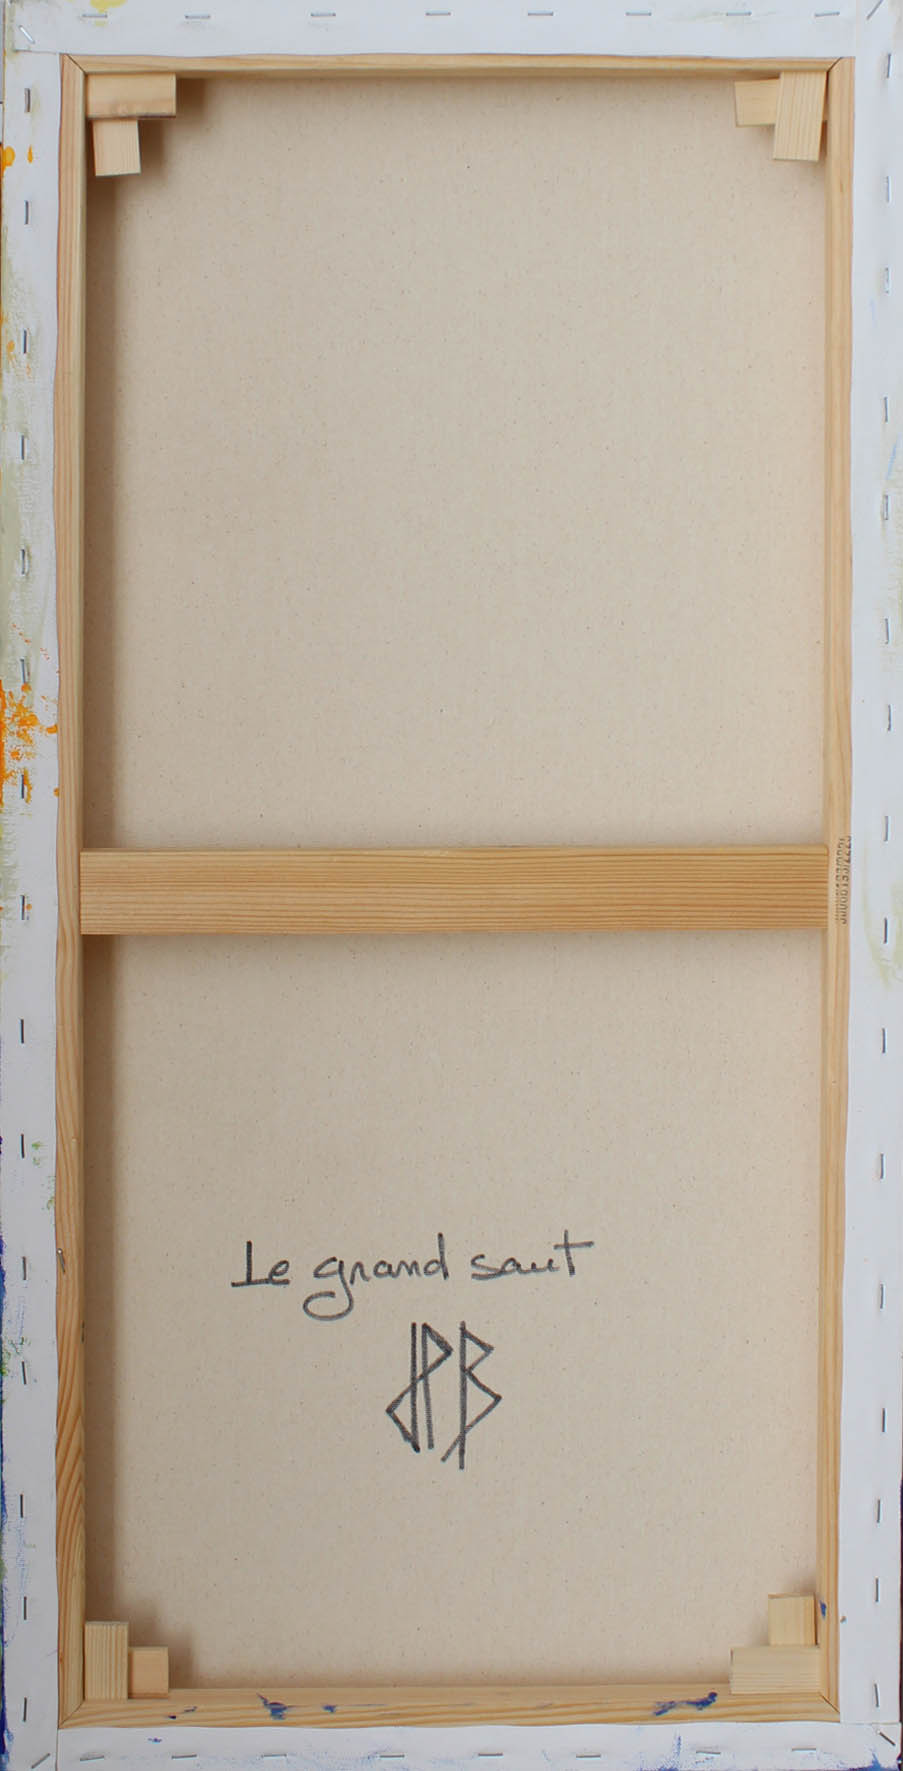 Le grand saut
JPB